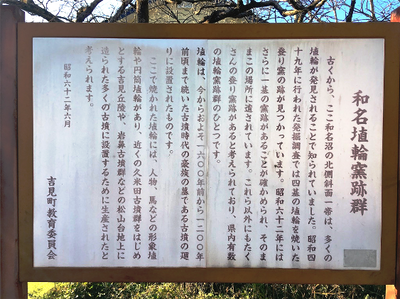 和名埴輪窯跡群
古くから、ここ和名沼の北側斜面一帯は、多くの
埴輪が発見されることで知られていました。昭和四
十九年に行われた発掘調査では四基の埴輪を焼いた
登り窯の跡が見つかっています。昭和六十二年には
さらに一基の窯跡があることが確かめられ、そのま
まこの場所に遺されています。これら以外にもたく
さんの登り窯跡があると考えられており、県内有数
の埴輪窯跡群のひとつです。
埴輪は、今からおよそ一六〇〇年前から一二〇〇年
前頃まで続いた古墳時代の豪族の墓である古墳の廻
りに設置されたものです。
ここで焼かれた埴輪には、人物、馬などの形象埴
輪や円筒埴輪があり、近くの久米田古墳群をはじめ
とする吉見丘陵や、岩鼻古墳群などの松山台地上に
造られた多くの古墳に設置するために生産されたと
考えられます。
昭和六十二年六月
吉見町教育委員会